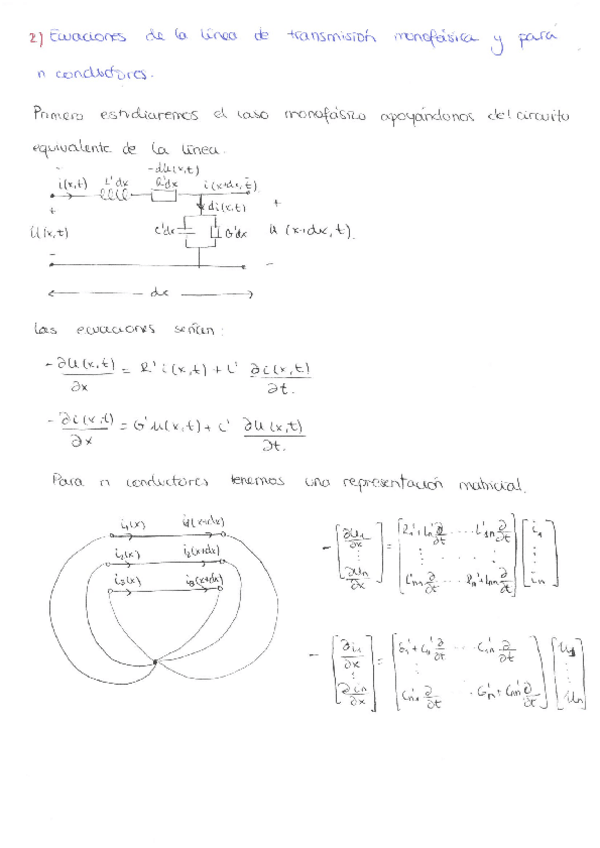 2) Ecuaciones de la línea de transmisión monofásica y para
n conductores.
Primero estudiaremos el caso monofásico apoyándonos del circuito
equivalente de la línea.
-du(x,t)
i(x,t) L'dx R'dx i(x+dx,t)
di(x,t)
U(x,t) C'dx G'dx U(x+dx,t)
dx
Las ecuaciones serían:
-∂U(x,t)/∂x = R' i(x,t) + L' ∂i(x,t)/∂t.
-∂i(x,t)/∂x = G' U(x,t) + C' ∂U(x,t)/∂t.
Para n conductores tenemos una representación matricial.
i₁(x) i₁(x+dx)
i₂(x) i₂(x+dx)
i₃(x) i₃(x+dx)
-[∂U₁/∂x ⋮ ∂Uₙ/∂x] = [R₁'+L₁₁'∂/∂t ⋯ L'₁ₙ∂/∂t ⋮ L'ₙ₁∂/∂t ⋯ Rₙ'+Lₙₙ'∂/∂t] [i₁ ⋮ iₙ]
-[∂i₁/∂x ⋮ ∂iₙ/∂x] = [G₁'+C₁₁'∂/∂t ⋯ C₁ₙ'∂/∂t ⋮ Cₙ₁'∂/∂t ⋯ Gₙ'+Cₙₙ'∂/∂t] [U₁ ⋮ Uₙ]